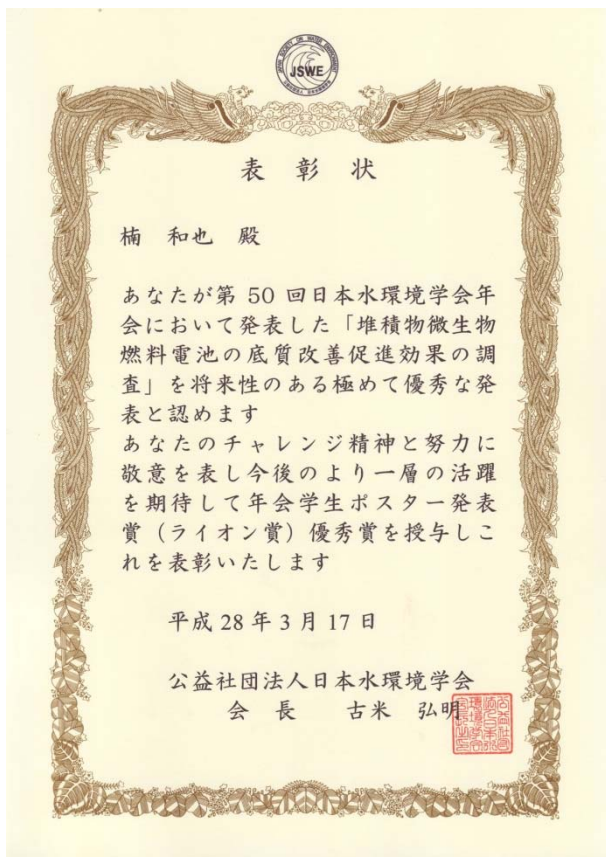 JSWE
表 彰 状
楠 和也 殿
あなたが第 50 回日本水環境学会年
会において発表した「堆積物微生物
燃料電池の底質改善促進効果の調
査」を将来性のある極めて優秀な発
表と認めます
あなたのチャレンジ精神と努力に
敬意を表し今後のより一層の活躍
を期待して年会学生ポスター発表
賞（ライオン賞）優秀賞を授与しこ
れを表彰いたします
平成 28 年 3 月 17 日
公益社団法人日本水環境学会
会 長 古米 弘明